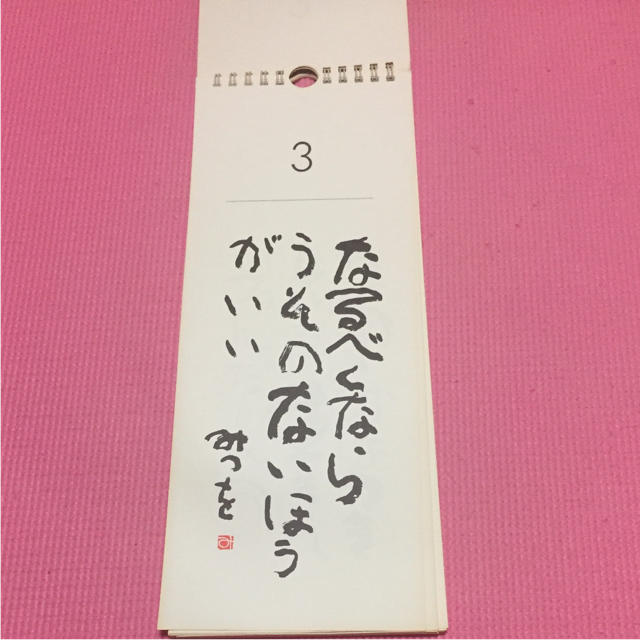 3
なるべくなら
うそのないほう
がいい
みつを